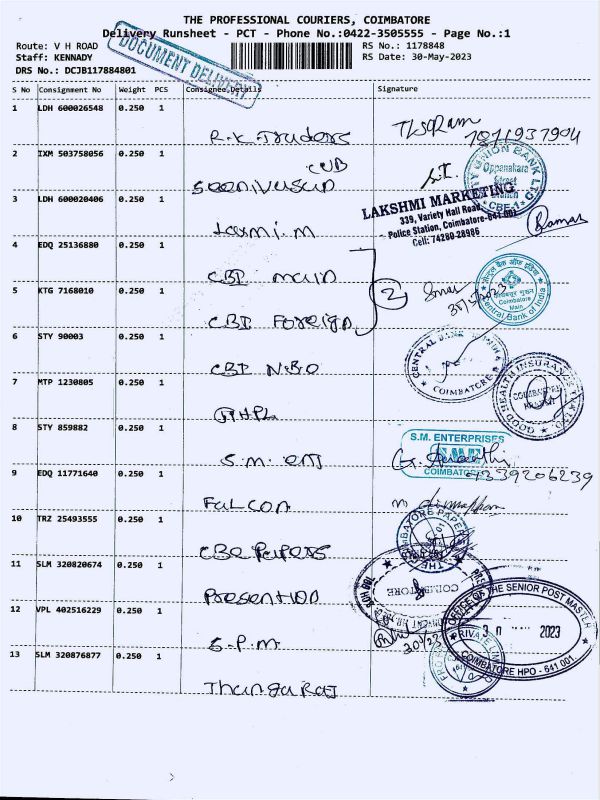 THE PROFESSIONAL COURIERS, COIMBATORE
Delivery Runsheet - PCT - Phone No.:0422-3505555 - Page No.:1
Route: V H ROAD
Staff: KENNADY
DRS No.: DCJB117884801
DOCUMENT DELIVERY
RS No.: 1178848
RS Date: 30-May-2023
S No Consignment No Weight PCS Consignee Details Signature
1 LDH 600026548 0.250 1
R.K.Traders
7871937904
2 IXM 503758056 0.250 1
CUB
Seenivasan
CITY UNION BANK LTD
Oppanakara
Street
CBE-1
3 LDH 600020406 0.250 1
Laxmi.M
LAKSHMI MARKETING
339, Variety Hall Road,
Police Station, Coimbatore-641 001
Cell: 74280 28986
4 EDQ 25136880 0.250 1
CBI main
2
5 KTG 7168010 0.250 1
CBI Foreign
Coimbatore
Main
Central Bank of India
6 STY 90003 0.250 1
CBI NBO
CENTRAL BANK INDIA
COIMBATORE
7 MTP 1230805 0.250 1
GOOD HEALTH INSURANCE TPA LTD.
COIMBATORE
8 STY 859882 0.250 1
S.M. ent
S.M. ENTERPRISES
SME
COIMBATORE
9339206239
9 EDQ 11771640 0.250 1
Falcon
10 TRZ 25493555 0.250 1
CBE Papers
THE COIMBATORE PAPER
11 SLM 320820674 0.250 1
COIMBATORE
12 VPL 402516229 0.250 1
S.P.M
OFFICE OF THE SENIOR POST MASTER
2023
COIMBATORE HPO - 641 001
13 SLM 320876877 0.250 1
Thangaraj